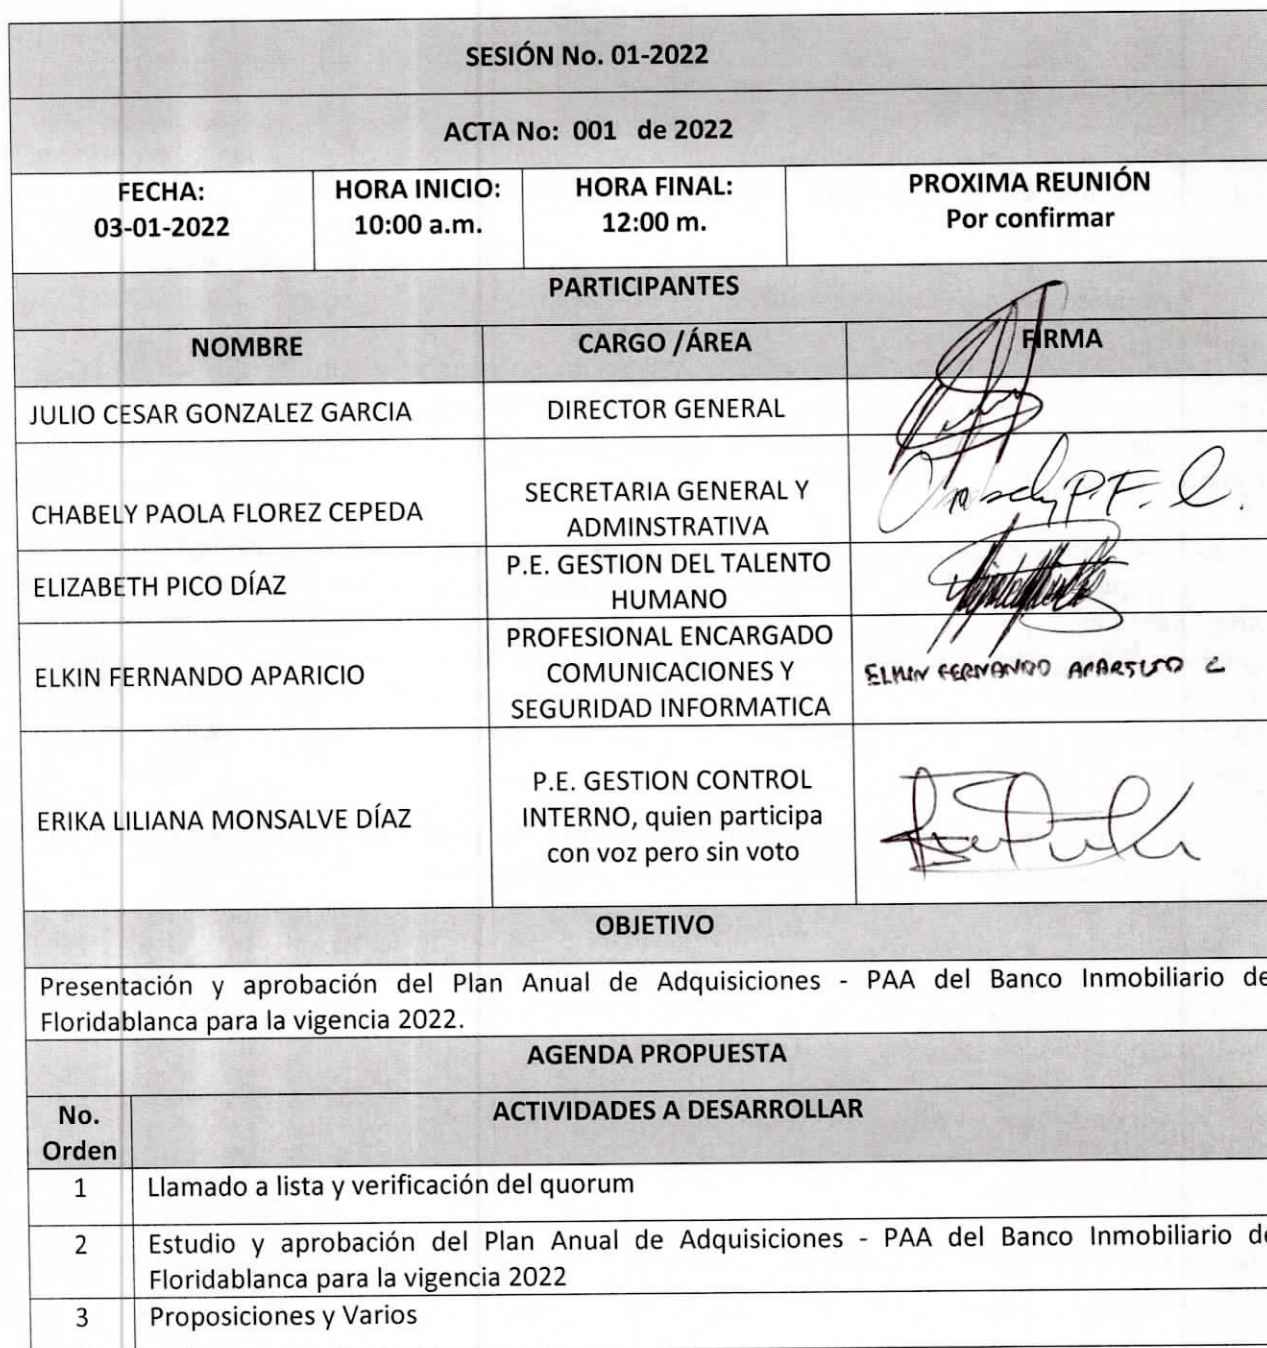 SESIÓN No. 01-2022
ACTA No: 001 de 2022
FECHA:
03-01-2022
HORA INICIO:
10:00 a.m.
HORA FINAL:
12:00 m.
PROXIMA REUNIÓN
Por confirmar
PARTICIPANTES
NOMBRE
CARGO /ÁREA
FIRMA
JULIO CESAR GONZALEZ GARCIA
DIRECTOR GENERAL
CHABELY PAOLA FLOREZ CEPEDA
SECRETARIA GENERAL Y
ADMINSTRATIVA
ELIZABETH PICO DÍAZ
P.E. GESTION DEL TALENTO
HUMANO
ELKIN FERNANDO APARICIO
PROFESIONAL ENCARGADO
COMUNICACIONES Y
SEGURIDAD INFORMATICA
ELKIN FERNANDO APARICIO C
ERIKA LILIANA MONSALVE DÍAZ
P.E. GESTION CONTROL
INTERNO, quien participa
con voz pero sin voto
OBJETIVO
Presentación y aprobación del Plan Anual de Adquisiciones - PAA del Banco Inmobiliario de
Floridablanca para la vigencia 2022.
AGENDA PROPUESTA
No.
Orden
ACTIVIDADES A DESARROLLAR
1 Llamado a lista y verificación del quorum
2 Estudio y aprobación del Plan Anual de Adquisiciones - PAA del Banco Inmobiliario de
Floridablanca para la vigencia 2022
3 Proposiciones y Varios